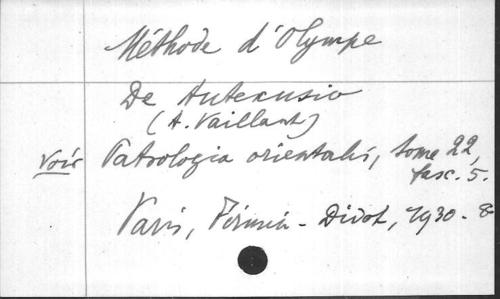 Méthode d'Olympe
De Autexusio
(A. Vaillant)
voir Patrologia orientalis, tome 22,
fasc. 5.
Paris, Firmin-Didot, 1930. 8